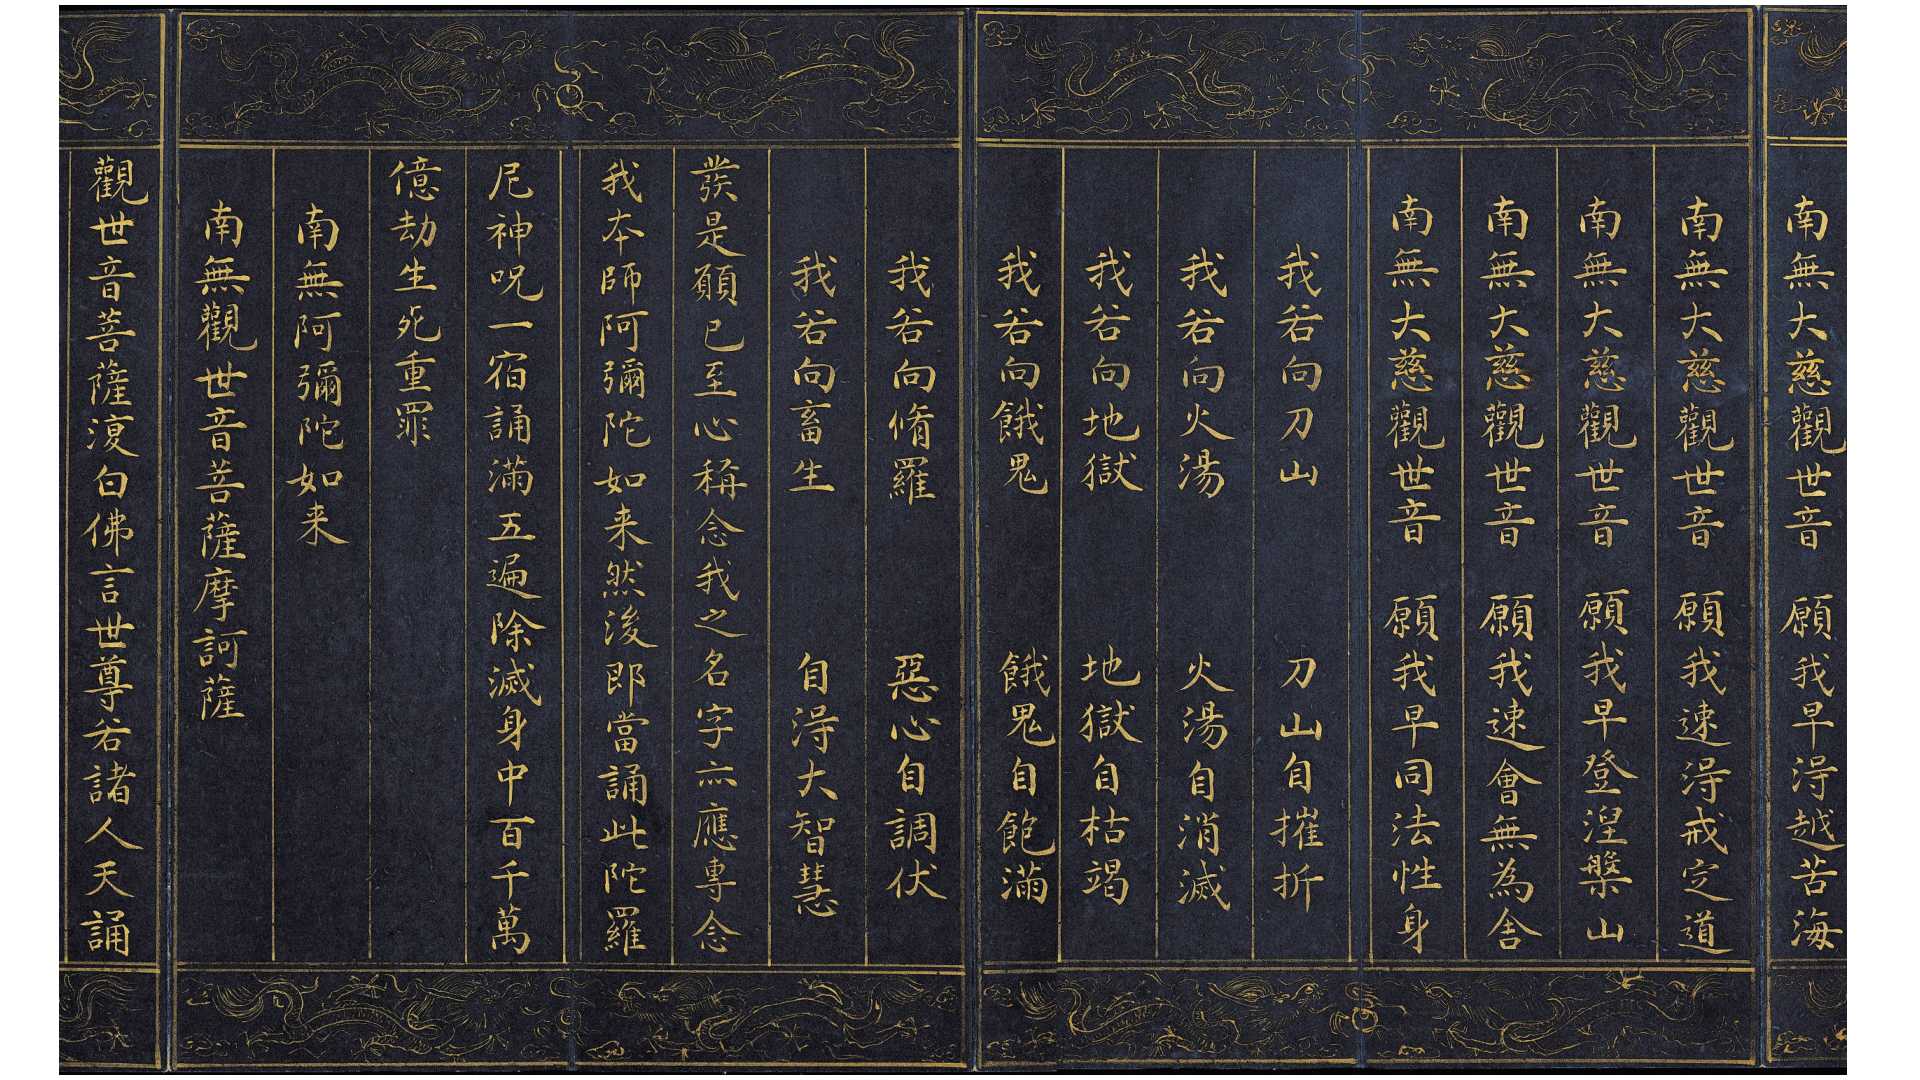 南無大慈觀世音　願我早得越苦海
南無大慈觀世音　願我速得戒定道
南無大慈觀世音　願我早登涅槃山
南無大慈觀世音　願我速會無為舍
南無大慈觀世音　願我早同法性身
我若向刀山　刀山自摧折
我若向火湯　火湯自消滅
我若向地獄　地獄自枯竭
我若向餓鬼　餓鬼自飽滿
我若向脩羅　惡心自調伏
我若向畜生　自得大智慧
發是願已至心稱念我之名字亦應專念
我本師阿彌陀如来然後即當誦此陀羅
尼神呪一宿誦滿五遍除滅身中百千萬
億劫生死重罪
南無阿彌陀如来
南無觀世音菩薩摩訶薩
觀世音菩薩復白佛言世尊若諸人天誦